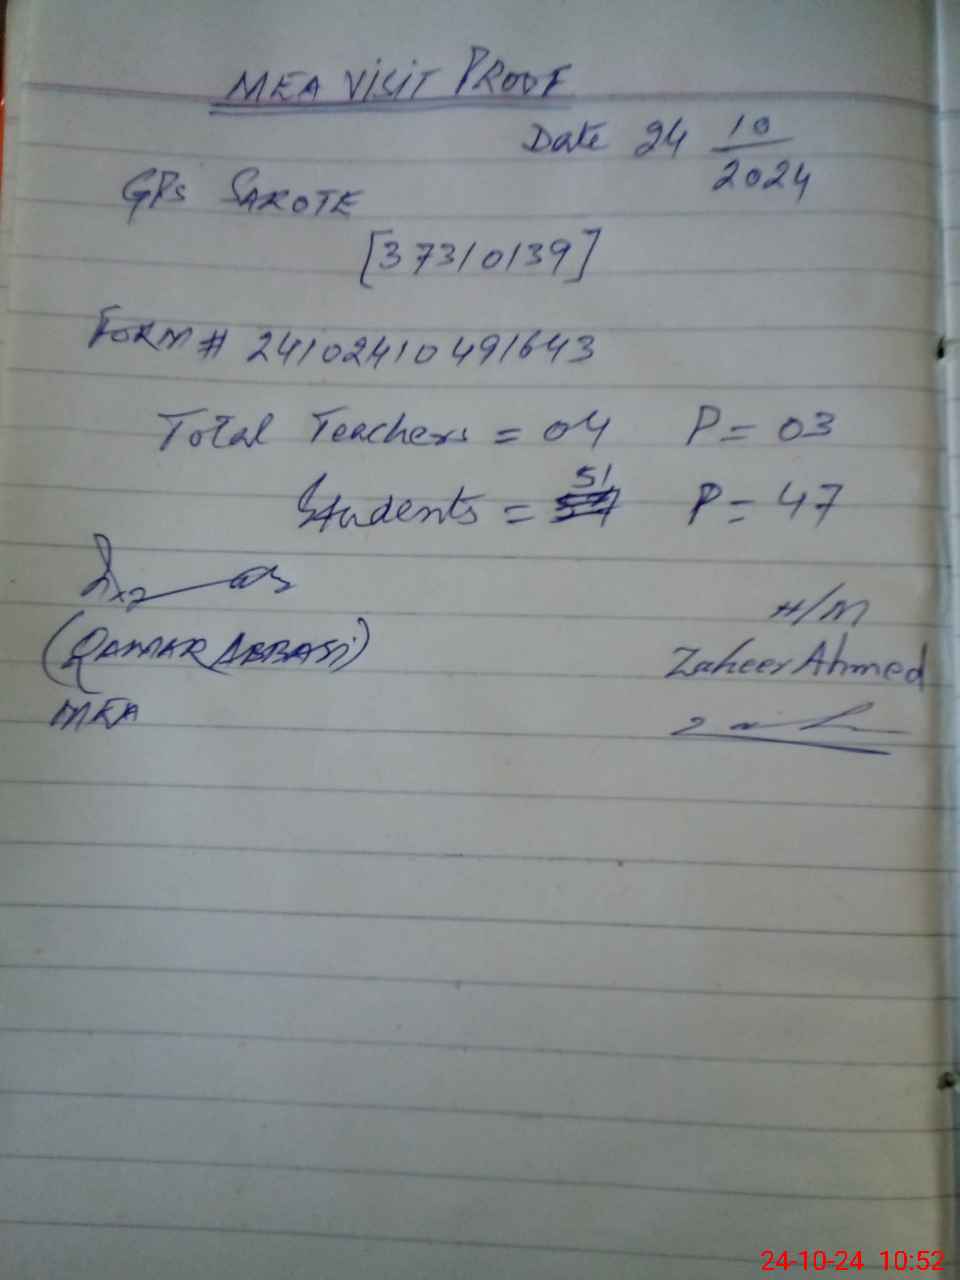 MEA VISIT PROOF
Date 24 10/2024
GPS SAROTE
[37310139]
FORM # 24102410491643
Total Teachers = 04 P = 03
Students = 51 P = 47
H/M
(QAMAR ABBASI) Zaheer Ahmed
MEA
24-10-24 10:52